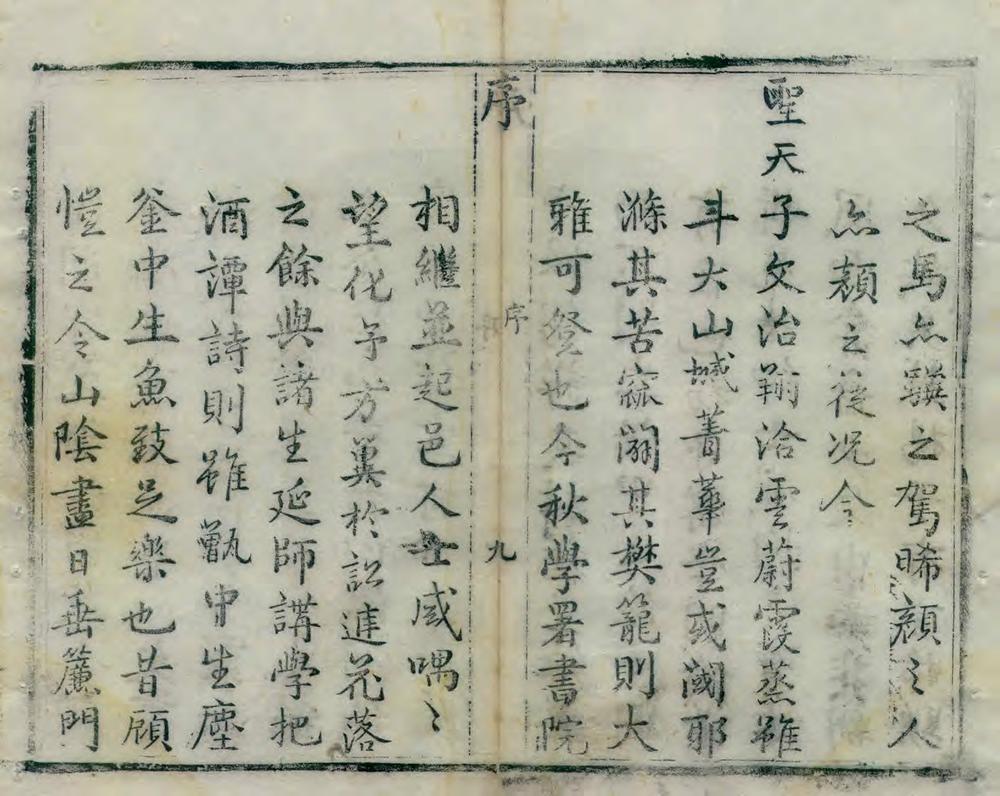 之馬亦驥之駕晞顏之人
亦顏之徒况今
聖天子文治翔洽雲蔚霞蒸雖
斗大山城菁華豈或閟耶
滌其苦窳闢其樊籠則大
雅可登也今秋學署書院
序
序
九
相繼並起邑人士咸喁〻
望化予方冀於訟速花落
之餘與諸生延師講學把
酒譚詩則雖甑中生塵
釜中生魚致足樂也昔顧
愷之令山陰晝日垂簾門